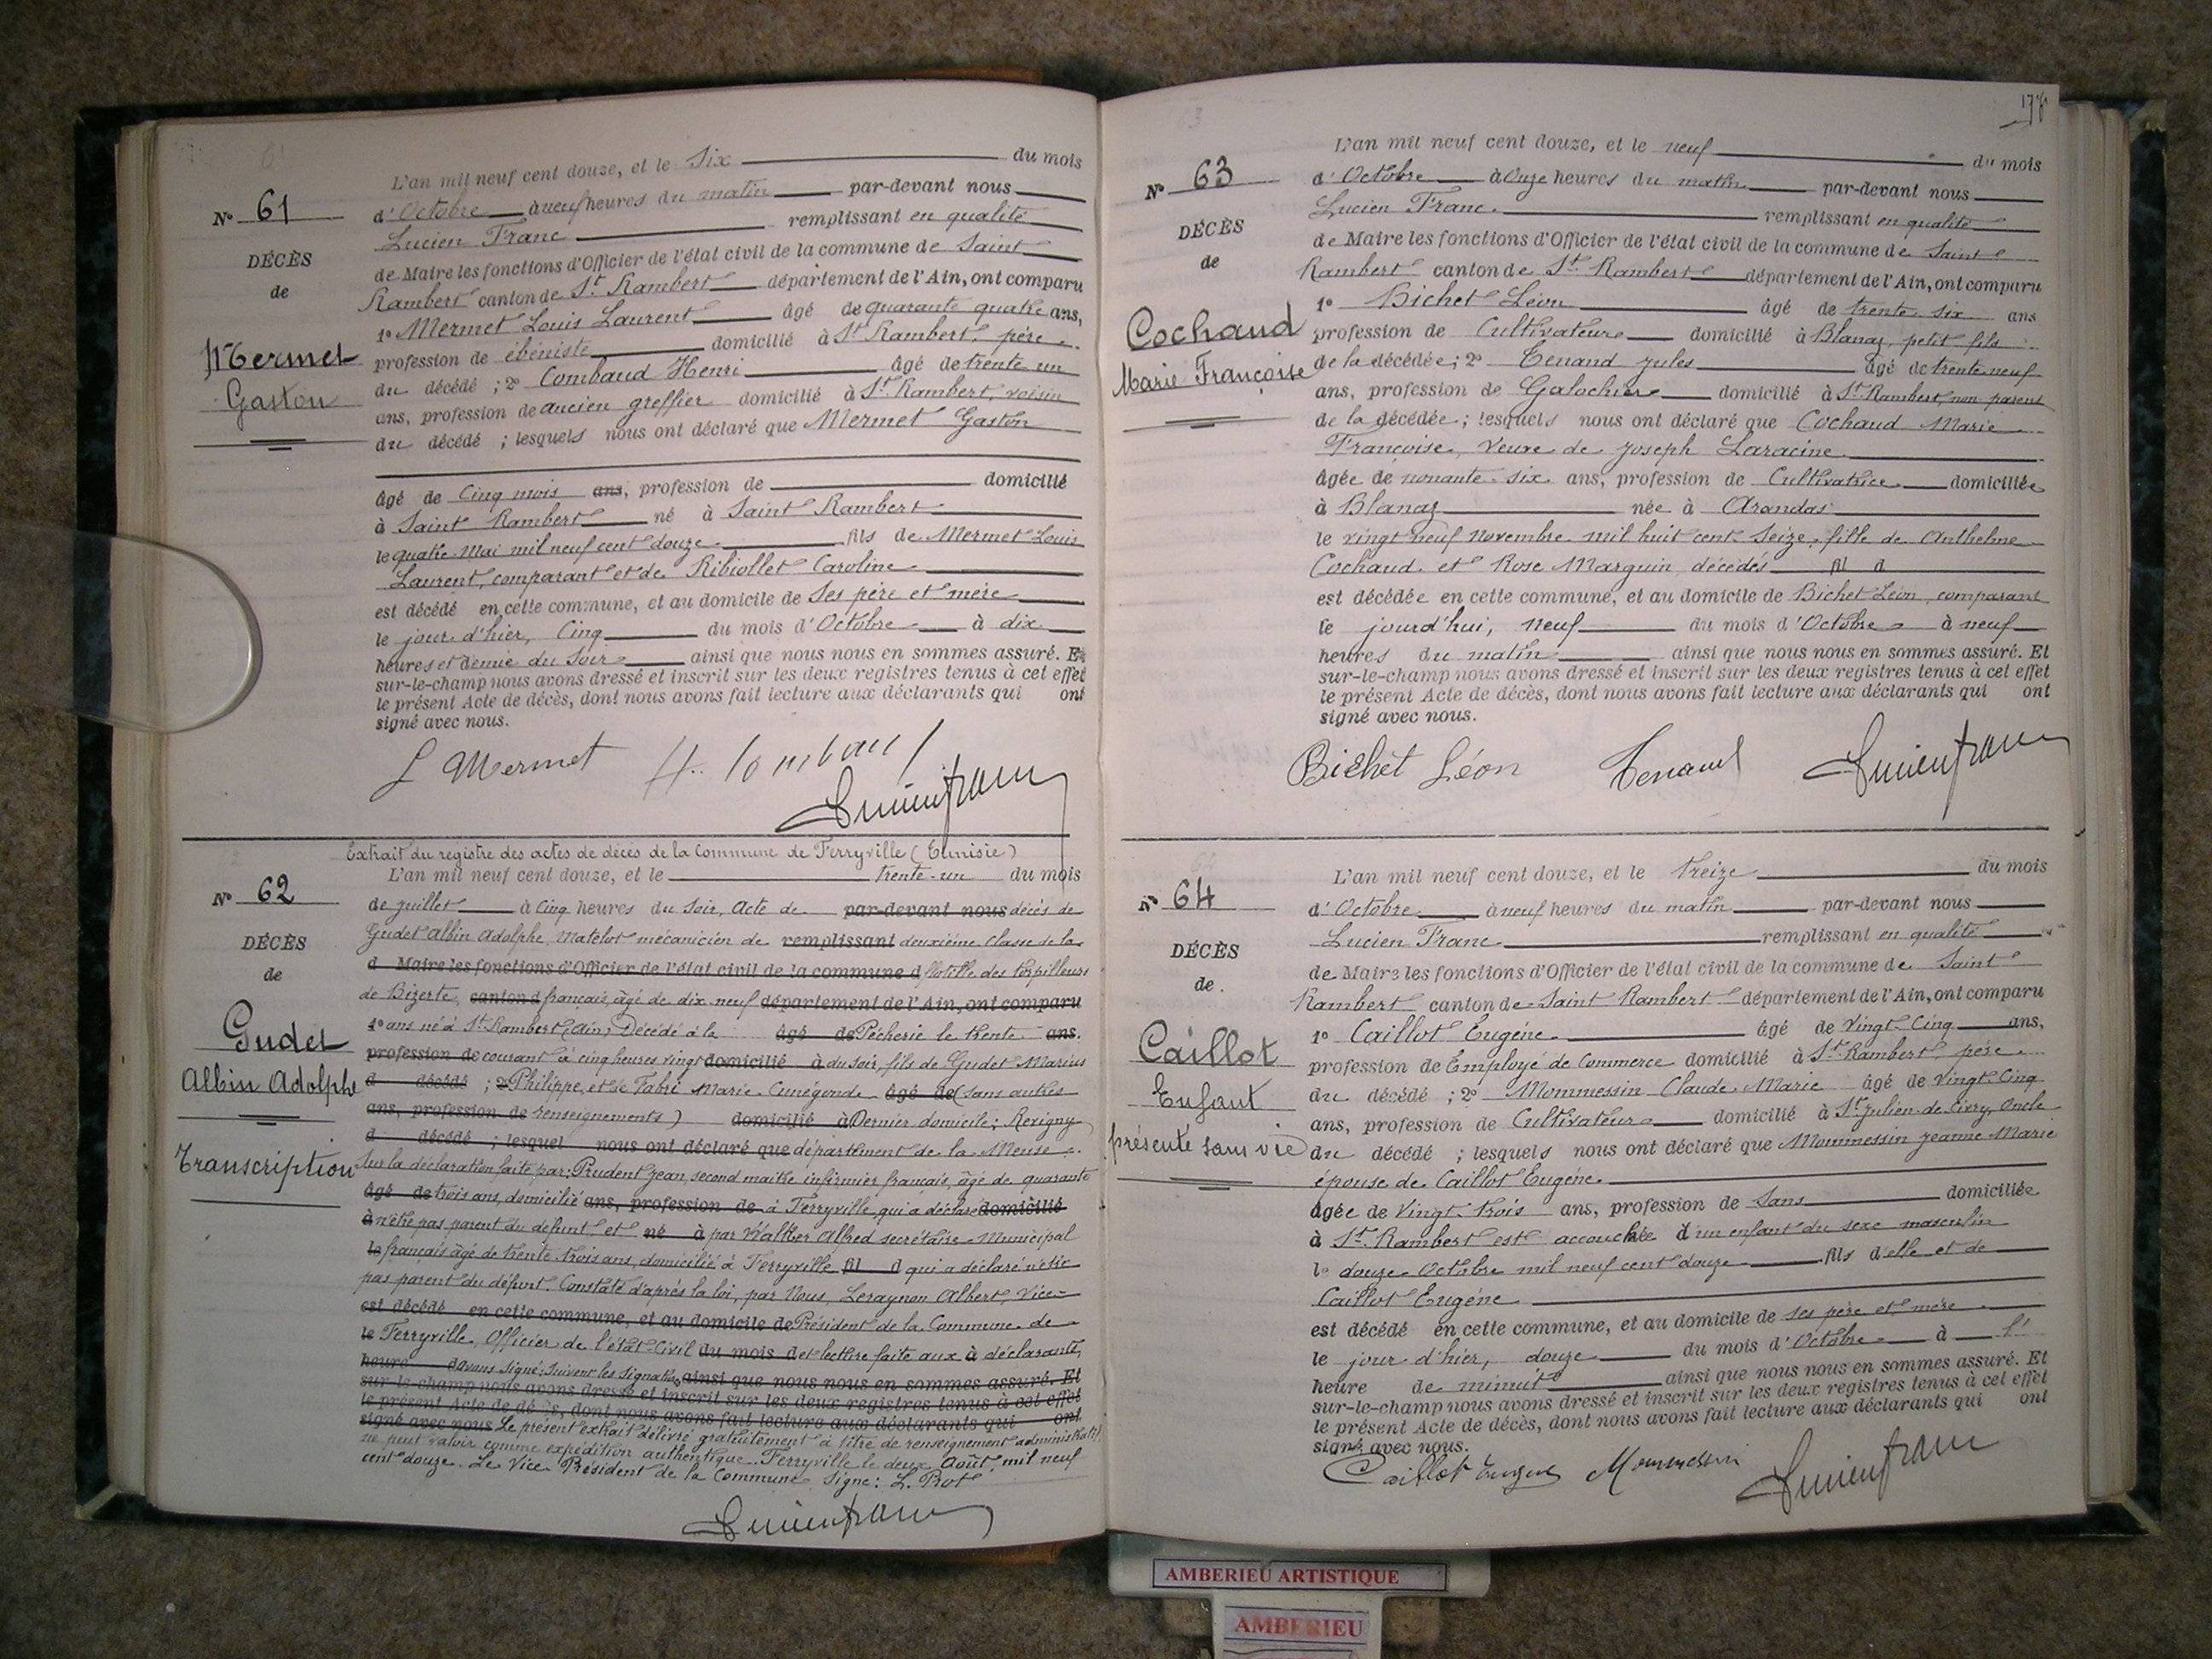 L'an mil neuf cent douze, et le Six du mois
N° 61
d'Octobre à neuf heures du matin par-devant nous
Lucien Franc remplissant en qualité
DÉCÈS
de Maire les fonctions d'Officier de l'état civil de la commune de Saint
de
Rambert canton de St. Rambert département de l'Ain, ont comparu
1° Mermet Louis Laurent âgé de quarante quatre ans,
Mermet
profession de ébéniste domicilié à St. Rambert, père
Gaston
du décédé ; 2° Combaud Henri âgé de trente un
ans, profession de ancien greffier domicilié à St. Rambert, voisin
du décédé ; lesquels nous ont déclaré que Mermet Gaston
âgé de Cinq mois ans, profession de domicilié
à Saint Rambert né à Saint Rambert
le quatre Mai mil neuf cent douze fils de Mermet Louis
Laurent, comparant et de Ribiollet Caroline
est décédé en cette commune, et au domicile de Ses père et mère
le jour d'hier, Cinq du mois d'Octobre à dix
heures et demie du Soir ainsi que nous nous en sommes assuré. Et
sur-le-champ nous avons dressé et inscrit sur les deux registres tenus à cet effet
le présent Acte de décès, dont nous avons fait lecture aux déclarants qui ont
signé avec nous.
L Mermet H. Combaud
Lucien franc
Extrait du registre des actes de décès de la Commune de Ferryville (Tunisie)
L'an mil neuf cent douze, et le trente-un du mois
N° 62
de juillet à Cinq heures du Soir, Acte de par-devant nous décès de
DÉCÈS
Gudet Albin Adolphe, Matelot mécanicien de remplissant deuxième Classe de la
de
d Maire les fonctions d'Officier de l'état civil de la commune d flotille des torpilleurs
de Bizerte, canton d français, âgé de dix neuf département de l'Ain, ont comparu
Gudet
1° ans né à St. Rambert (Ain) Décédé à la âgé de Pêcherie le trente ans.
profession de courant à cinq heures vingt domicilié à du soir, fils de Gudet Marius
Albin Adolphe
d décédé ; 2° Philippe, et de Fabri Marie Cunégonde âgé de (sans autres
ans, profession de renseignements) domicilié à Dernier domicile ; Revigny
d décédé ; lesquel nous ont déclaré que département de la Meuse.
Transcription
Sur la déclaration faite par : Prudent Jean, second maître infirmier français, âgé de quarante
âgé de trois ans, domicilié ans, profession de à Ferryville, qui a déclaré domicilié
à n'être pas parent du défunt, et né à par Walther Alfred secrétaire Municipal
le français âgé de trente trois ans, domicilié à Ferryville fil d qui a déclaré n'être
pas parent du défunt. Constaté d'après la loi, par Nous, Leraynon Albert, Vice-
est décédé en cette commune, et au domicile de Président de la Commune de
le Ferryville, Officier de l'état-Civil du mois d et lecture faite aux à déclarants,
heure d avons signé. Suivent les signatures ainsi que nous nous en sommes assuré. Et
sur-le-champ nous avons dressé et inscrit sur les deux registres tenus à cet effet
le présent Acte de décès, dont nous avons fait lecture aux déclarants qui ont
signé avec nous Le présent extrait délivré gratuitement à titre de renseignement administratif,
ne peut valoir comme expédition authentique. Ferryville le deux Août mil neuf
cent douze. Le Vice Président de la Commune Signé : L. Prot
Lucien franc
176
L'an mil neuf cent douze, et le neuf du mois
N° 63
d'Octobre à Onze heures du matin par-devant nous
Lucien Franc. remplissant en qualité
DÉCÈS
de Maire les fonctions d'Officier de l'état civil de la commune de Saint
de
Rambert canton de St. Rambert département de l'Ain, ont comparu
1° Bichet Léon âgé de trente six ans
Cochaud
profession de Cultivateur domicilié à Blanaz, petit fils
Marie Françoise
de la décédée ; 2° Tenand Jules âgé de trente neuf
ans, profession de Galochier domicilié à St. Rambert, non parent
de la décédée ; lesquels nous ont déclaré que Cochaud Marie
Françoise, Veuve de Joseph Laracine
âgée de nonante-six ans, profession de Cultivatrice domiciliée
à Blanaz née à Arandas
le vingt neuf Novembre mil huit cent Seize, fille de Anthelme
Cochaud et Rose Marguin, décédés fil d
est décédée en cette commune, et au domicile de Bichet Léon, comparant
le jourd'hui, neuf du mois d'Octobre à neuf
heures du matin ainsi que nous nous en sommes assuré. Et
sur-le-champ nous avons dressé et inscrit sur les deux registres tenus à cet effet
le présent Acte de décès, dont nous avons fait lecture aux déclarants qui ont
signé avec nous.
Bichet Léon Tenand Lucien franc
L'an mil neuf cent douze, et le treize du mois
N° 64
d'Octobre à neuf heures du matin par-devant nous
Lucien Franc. remplissant en qualité
DÉCÈS
de Maire les fonctions d'Officier de l'état civil de la commune de Saint
de.
Rambert canton de Saint Rambert département de l'Ain, ont comparu
1° Caillot Eugène âgé de Vingt-Cinq ans,
Caillot
profession de Employé de Commerce domicilié à St. Rambert, père
Enfant
du décédé ; 2° Mommessin Claude Marie âgé de Vingt-Cinq
ans, profession de Cultivateur domicilié à St. Julien-de-Civry, Oncle
présenté sans vie
du décédé ; lesquels nous ont déclaré que Mommessin Jeanne Marie
épouse de Caillot Eugène
âgée de Vingt-trois ans, profession de Sans domiciliée
à St. Rambert est accouchée d'un enfant du sexe masculin
le douze Octobre mil neuf cent douze fils d'elle et de
Caillot Eugène
est décédé en cette commune, et au domicile de ses père et mère
le jour d'hier, douze du mois d'Octobre à l'
heure de minuit ainsi que nous nous en sommes assuré. Et
sur-le-champ nous avons dressé et inscrit sur les deux registres tenus à cet effet
le présent Acte de décès, dont nous avons fait lecture aux déclarants qui ont
signé avec nous.
Caillot Eugène Mommessin Lucien franc
AMBERIEU ARTISTIQUE
AMBERIEU